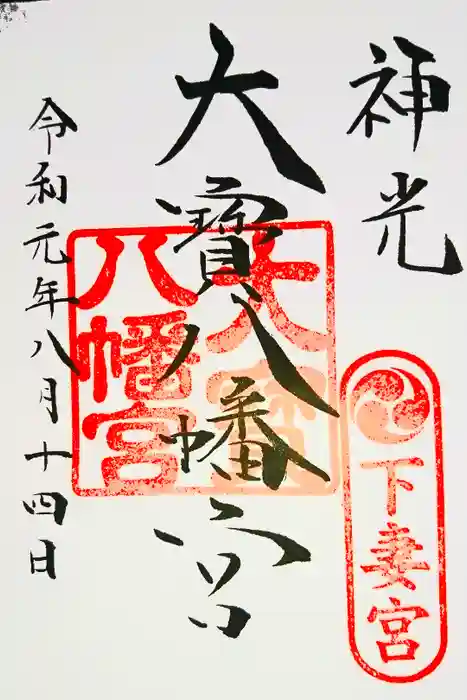 神光
下妻宮
大寳八幡宮
大宝
八幡宮
令和元年八月十四日